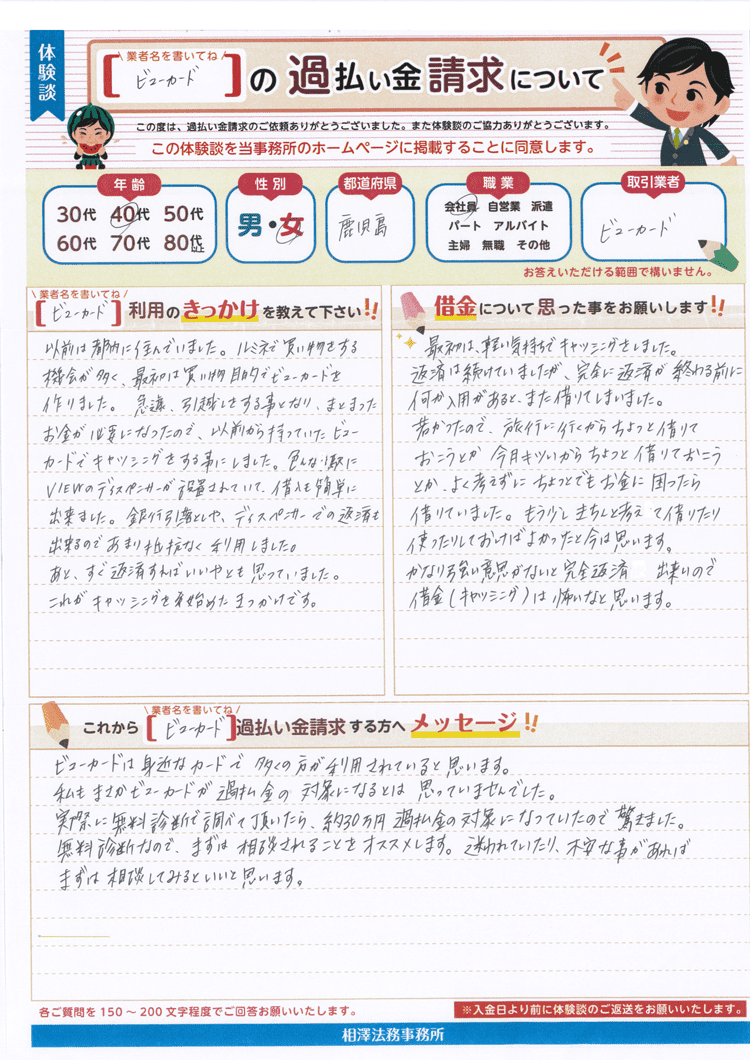 体験談
\ 業者名を書いてね /
[ ビューカード ] の 過払い金 請求について
この度は、過払い金請求のご依頼ありがとうございました。また体験談のご協力ありがとうございます。
この体験談を当事務所のホームページに掲載することに同意します。
年齢
30代 40代 50代
60代 70代 80代以上
性別
男・女
都道府県
鹿児島
職業
会社員 自営業 派遣
パート アルバイト
主婦 無職 その他
取引業者
ビューカード
お答えいただける範囲で構いません。
\ 業者名を書いてね /
[ ビューカード ] 利用のきっかけを教えて下さい!!
以前は都内に住んでいました。ルミネで買い物をする
機会が多く、最初は買い物目的でビューカードを
作りました。急遽、引越しをする事となり、まとまった
お金が必要になったので、以前から持っていたビュー
カードでキャッシングをする事にしました。色んな駅に
VIEWのディスペンサーが設置されていて、借入も簡単に
出来ました。銀行引落としや、ディスペンサーでの返済も
出来るのであまり抵抗なく利用しました。
あと、すぐ返済すればいいやとも思っていました。
これがキャッシングを始めたきっかけです。
借金について思った事をお願いします!!
最初は、軽い気持ちでキャッシングをしました。
返済は続けていましたが、完全に返済が終わる前に
何か入用があると、また借りてしまいました。
若かったので、旅行に行くからちょっと借りて
おこうとか 今月キツいからちょっと借りておこう
とか、よく考えずにちょっとでもお金に困ったら
借りていました。もう少しきちんと考えて借りたり
使ったりしておけばよかったと今は思います。
かなり強い意思がないと完全返済 出来いので
借金(キャッシング)は怖いなと思います。
\ 業者名を書いてね /
これから[ ビューカード ]過払い金請求する方へ メッセージ!!
ビューカードは身近なカードで多くの方が利用されていると思います。
私もまさかビューカードが過払金の対象になるとは思っていませんでした。
実際に無料診断で調べて頂いたら、約30万円過払金の対象になっていたので驚きました。
無料診断なので、まずは相談されることをオススメします。迷われていたり、不安な事があれば
まずは相談してみるといいと思います。
各ご質問を150～200文字程度でご回答お願いいたします。
※入金日より前に体験談のご返送をお願いいたします。
相澤法務事務所